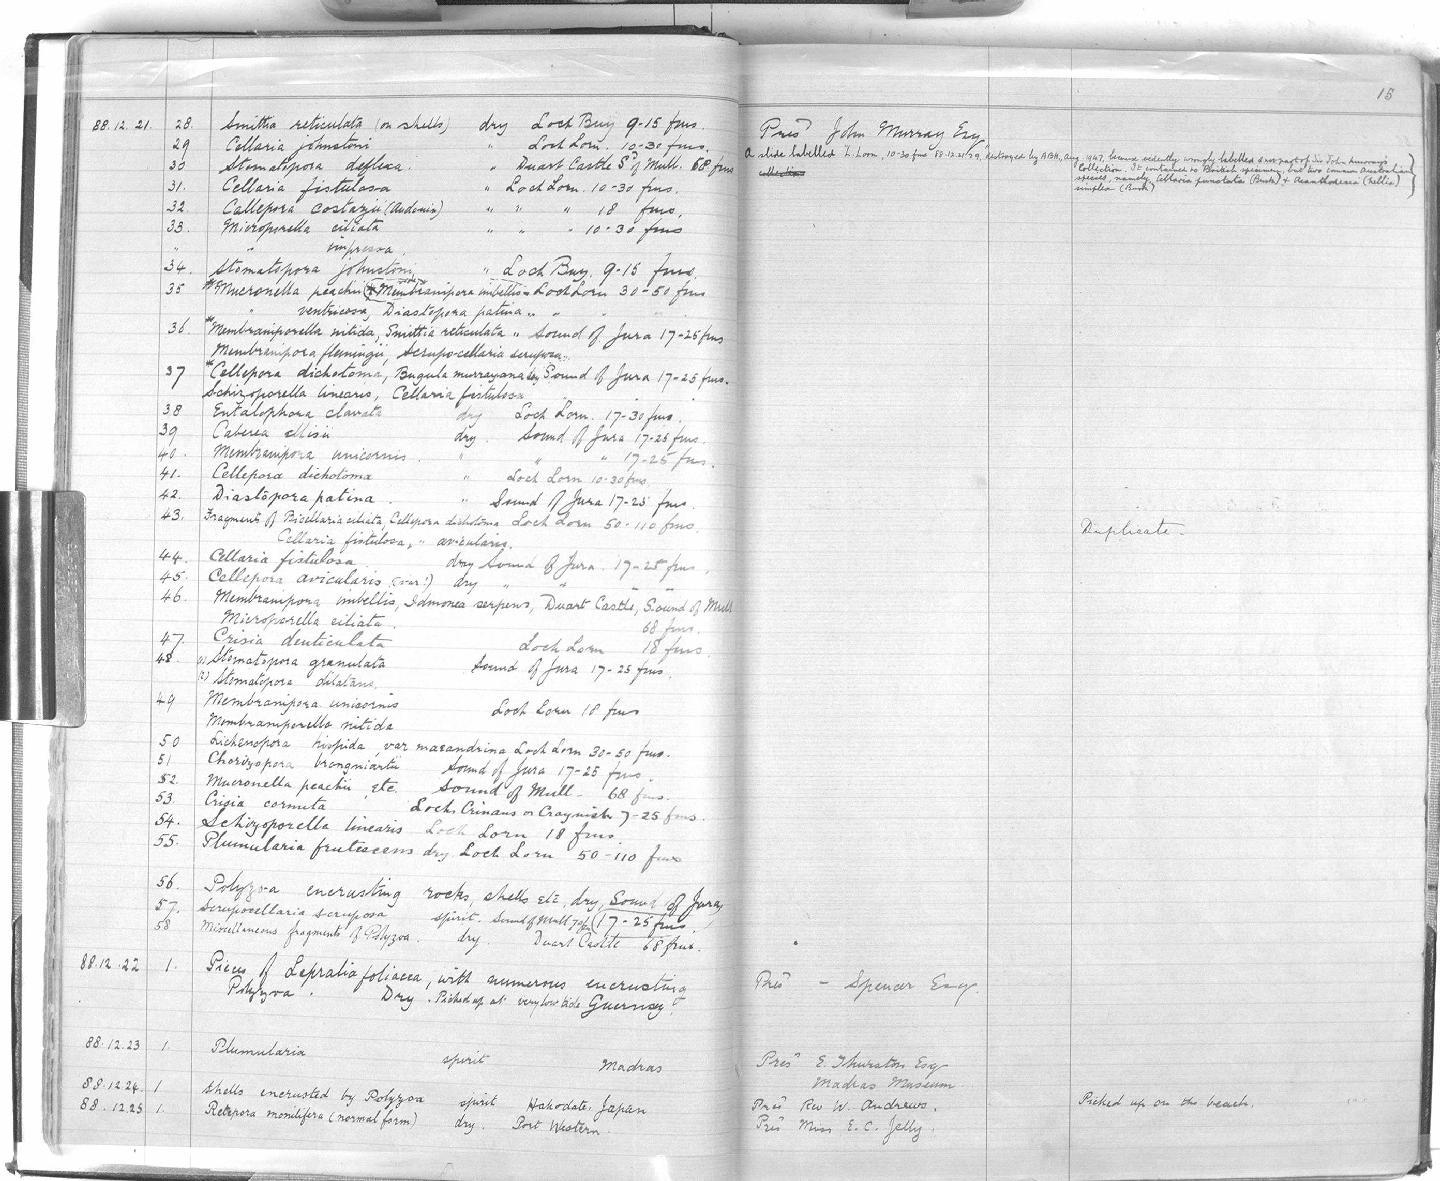 15
88.12.21. 28. Smittia reticulata (on shells) dry Loch Buy 9-15 fms. Presd John Murray Esq
29 Cellaria johnstoni " Loch Lorn. 10-30 fms.
A slide labelled "L. Lorn, 10-30 fms 88.12.21.29, destroyed by ABH, Aug 1947, because evidently wrongly labelled & not part of Sir John Murray's
30 Stomatopora deflexa " Duart Castle Sd of Mull. 68 fms
Collection. It contained no British specimens, but two common Australian
31. Cellaria fistulosa " Loch Lorn. 10-30 fms.
species, namely, Cellaria punctata (Busk) &
simplex (Busk)
32. Cellepora costazii (Audouin) " " " 18 fms.
33. Microporella ciliata " " " 10-30 fms
" " impressa
34. Stomatopora johnstoni " Loch Buy. 9-15 fms.
35 *Mucronella peachii Membranipora imbellis " Loch Lorn 30-50 fms
" ventricosa, Diastopora patina " " " "
36. *Membraniporella nitida, Smittia reticulata " Sound of Jura 17-25 fms
Membranipora flemingii, Scrupocellaria scruposa
37 *Cellepora dichotoma, Bugula murrayana dry Sound of Jura 17-25 fms.
Schizoporella linearis, Cellaria fistulosa
38 Entalophora clavata dry Loch Lorn. 17-30 fms.
39 Caberea ellisii dry. Sound of Jura 17-25 fms.
40. Membranipora unicornis. " " " 17-25 fms.
41. Cellepora dichotoma " Loch Lorn 10-30 fms.
42. Diastopora patina. " Sound of Jura 17-25 fms.
43. Fragments of Bicellaria ciliata, Cellepora dichotoma Loch Lorn 50-110 fms. Duplicate.
Cellaria fistulosa, " avicularis.
44. Cellaria fistulosa dry Sound of Jura. 17-25 fms.
45. Cellepora avicularis (var?) dry " " " "
46. Membranipora imbellis, Idmonea serpens, Duart Castle, Sound of Mull
Microporella ciliata. 68 fms.
47. Crisia denticulata Loch Lorn 18 fms.
48 (1) Stomatopora granulata Sound of Jura 17-25 fms.
(2) Stomatopora dilatans.
49 Membranipora unicornis Loch Lorn 18 fms
Membraniporella nitida
50 Lichenopora hispida, var maeandrina Loch Lorn 30-50 fms.
51 Chorizopora brongniartii Sound of Jura 17-25 fms.
52. Mucronella peachii, etc Sound of Mull - 68 fms.
53. Crisia cornuta Lochs Crinans or Craignish 7-25 fms.
54. Schizoporella linearis Loch Lorn 18 fms
55. Plumularia frutescens dry. Loch Lorn 50-110 fms
56. Polyzoa encrusting rocks, shells etc, dry, Sound of Jura,
57. Scrupocellaria scruposa spirit. Sound of Mull 70 fms (17-25 fms.
58 Miscellaneous fragments of Polyzoa. dry. Duart Castle 68 fms.
88.12.22 1. Pieces of Lepralia foliacea, with numerous encrusting Presd - Spencer Esq.
Polyzoa. Dry. Picked up at very low tide Guernsey.
88.12.23 1. Plumularia spirit Madras Presd E. Thurston Esq
Madras Museum
88.12.24. 1 Shells encrusted by Polyzoa spirit Hakodate, Japan Presd Rev W. Andrews. Picked up on the beach.
88.12.25 1. Retepora monilifera (normal form) dry. Port Western. Presd Miss E. C. Jelly.